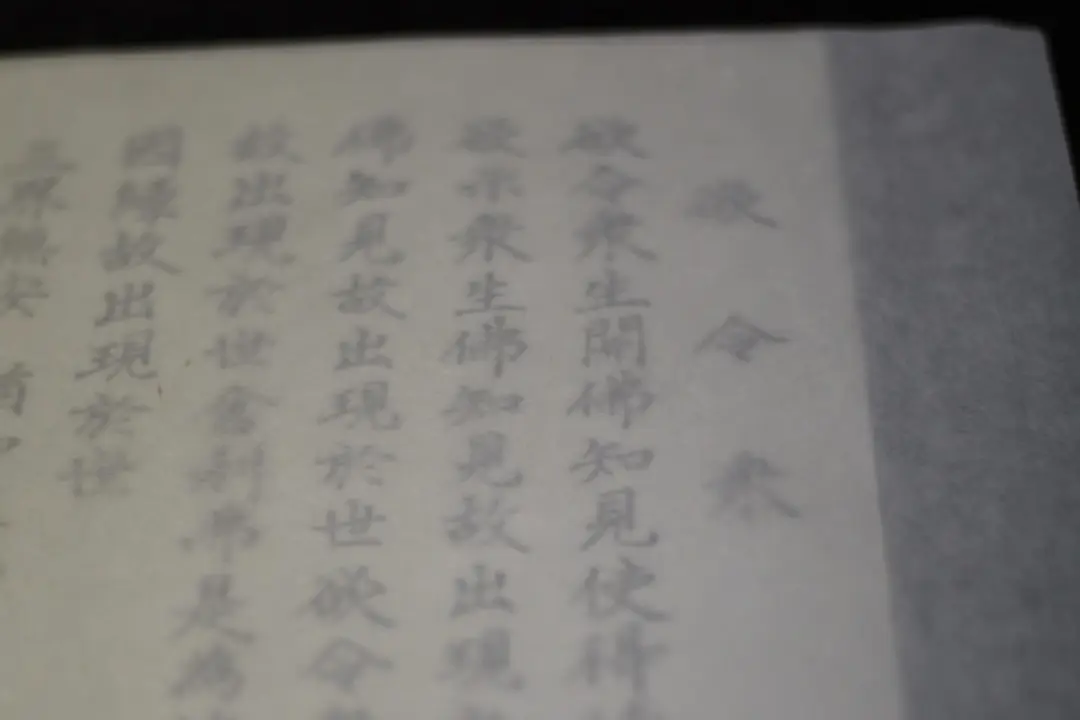 欲令衆
欲令衆生開佛知見使得
欲示衆生佛知見故出現
佛知見故出現於世欲令
故出現於世舍利弗是為
因緣故出現於世
三界無安